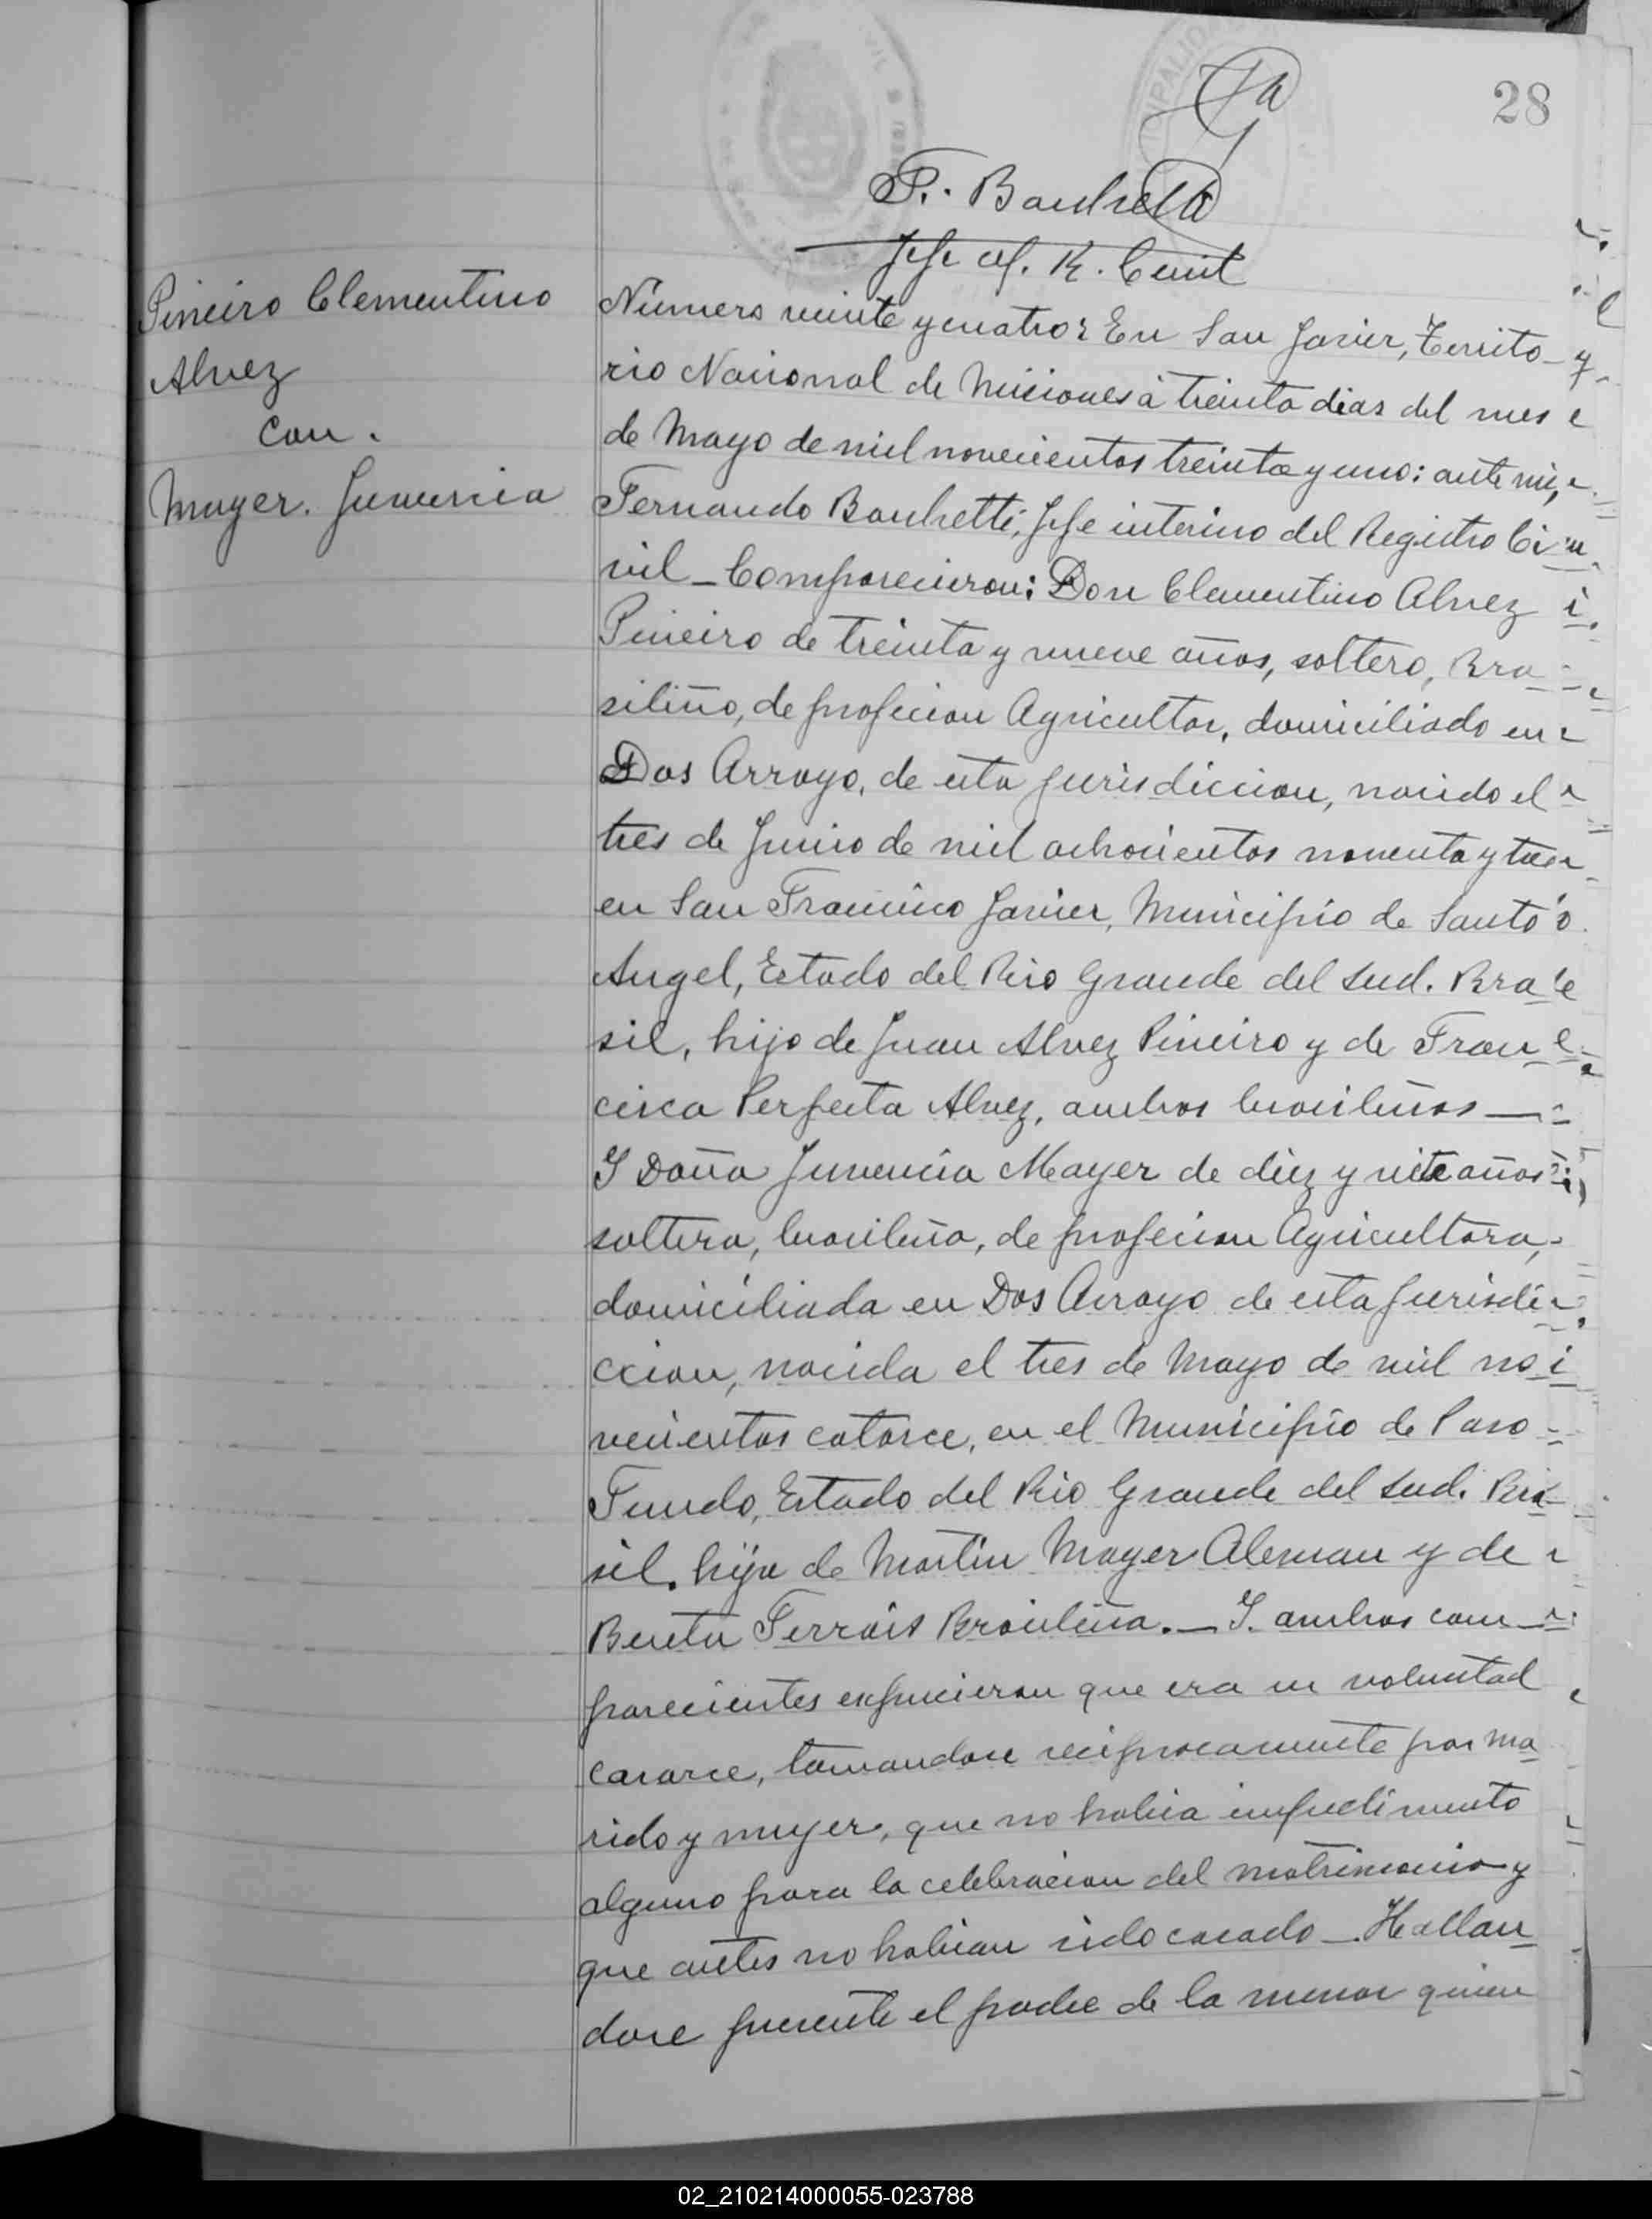 28
F. Banchetti
Jefe of. R. Civil
Pineiro Clementino
Alvez
con.
Mayer. Juvencia
Número veinte y cuatro: En San Javier, Territo-
rio Nacional de Misiones á treinta dias del mes
de Mayo de mil novecientos treinta y uno: ante mi,
Fernando Banchetti, Jefe interino del Registro Ci
vil - Comparecieron: Don Clementino Alvez
Pineiro de treinta y nueve años, soltero, Bra
siliño, de profecion Agricultor, domiciliado en
Dos Arroyo, de esta jurisdiccion, nacido el
tres de Junio de mil ochocientos noventa y tres
en San Francisco Javier, Municipio de Santo
Angel, Estado del Rio Grande del Sud. Bra
sil, hijo de Juan Alvez Pineiro y de Fran
cisca Perfecta Alvez, ambos brasileños —
Y Doña Juvencia Mayer de diez y siete años
soltera, brasileña, de profecion Agricultora,
domiciliada en Dos Arroyo de esta jurisdi
ccion, nacida el tres de Mayo de mil no
vecientos catorce, en el Municipio de Paso
Fundo, Estado del Rio Grande del Sud. Bra-
sil. hija de Martin Mayer Aleman y de
Benta Ferrais Brasileña. — Y. ambos com
parecientes expucieron que era su voluntad
casarce, tomandose reciprocamente por ma
rido y mujer, que no habia impedimento
alguno para la celebracion del matrimonio y
que antes no habian sido casado — Hallan
dose presente el padre de la menor quien
02_210214000055-023788